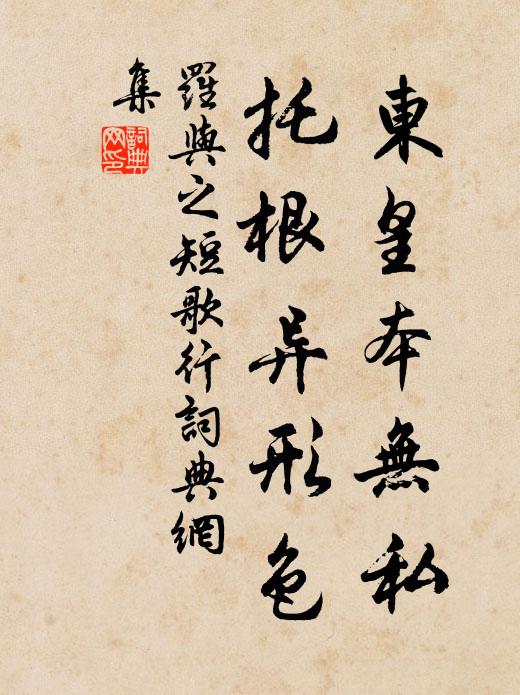 東皇本無私
托根异形色
羅與之短歌行詞典網
集
詞典
网印